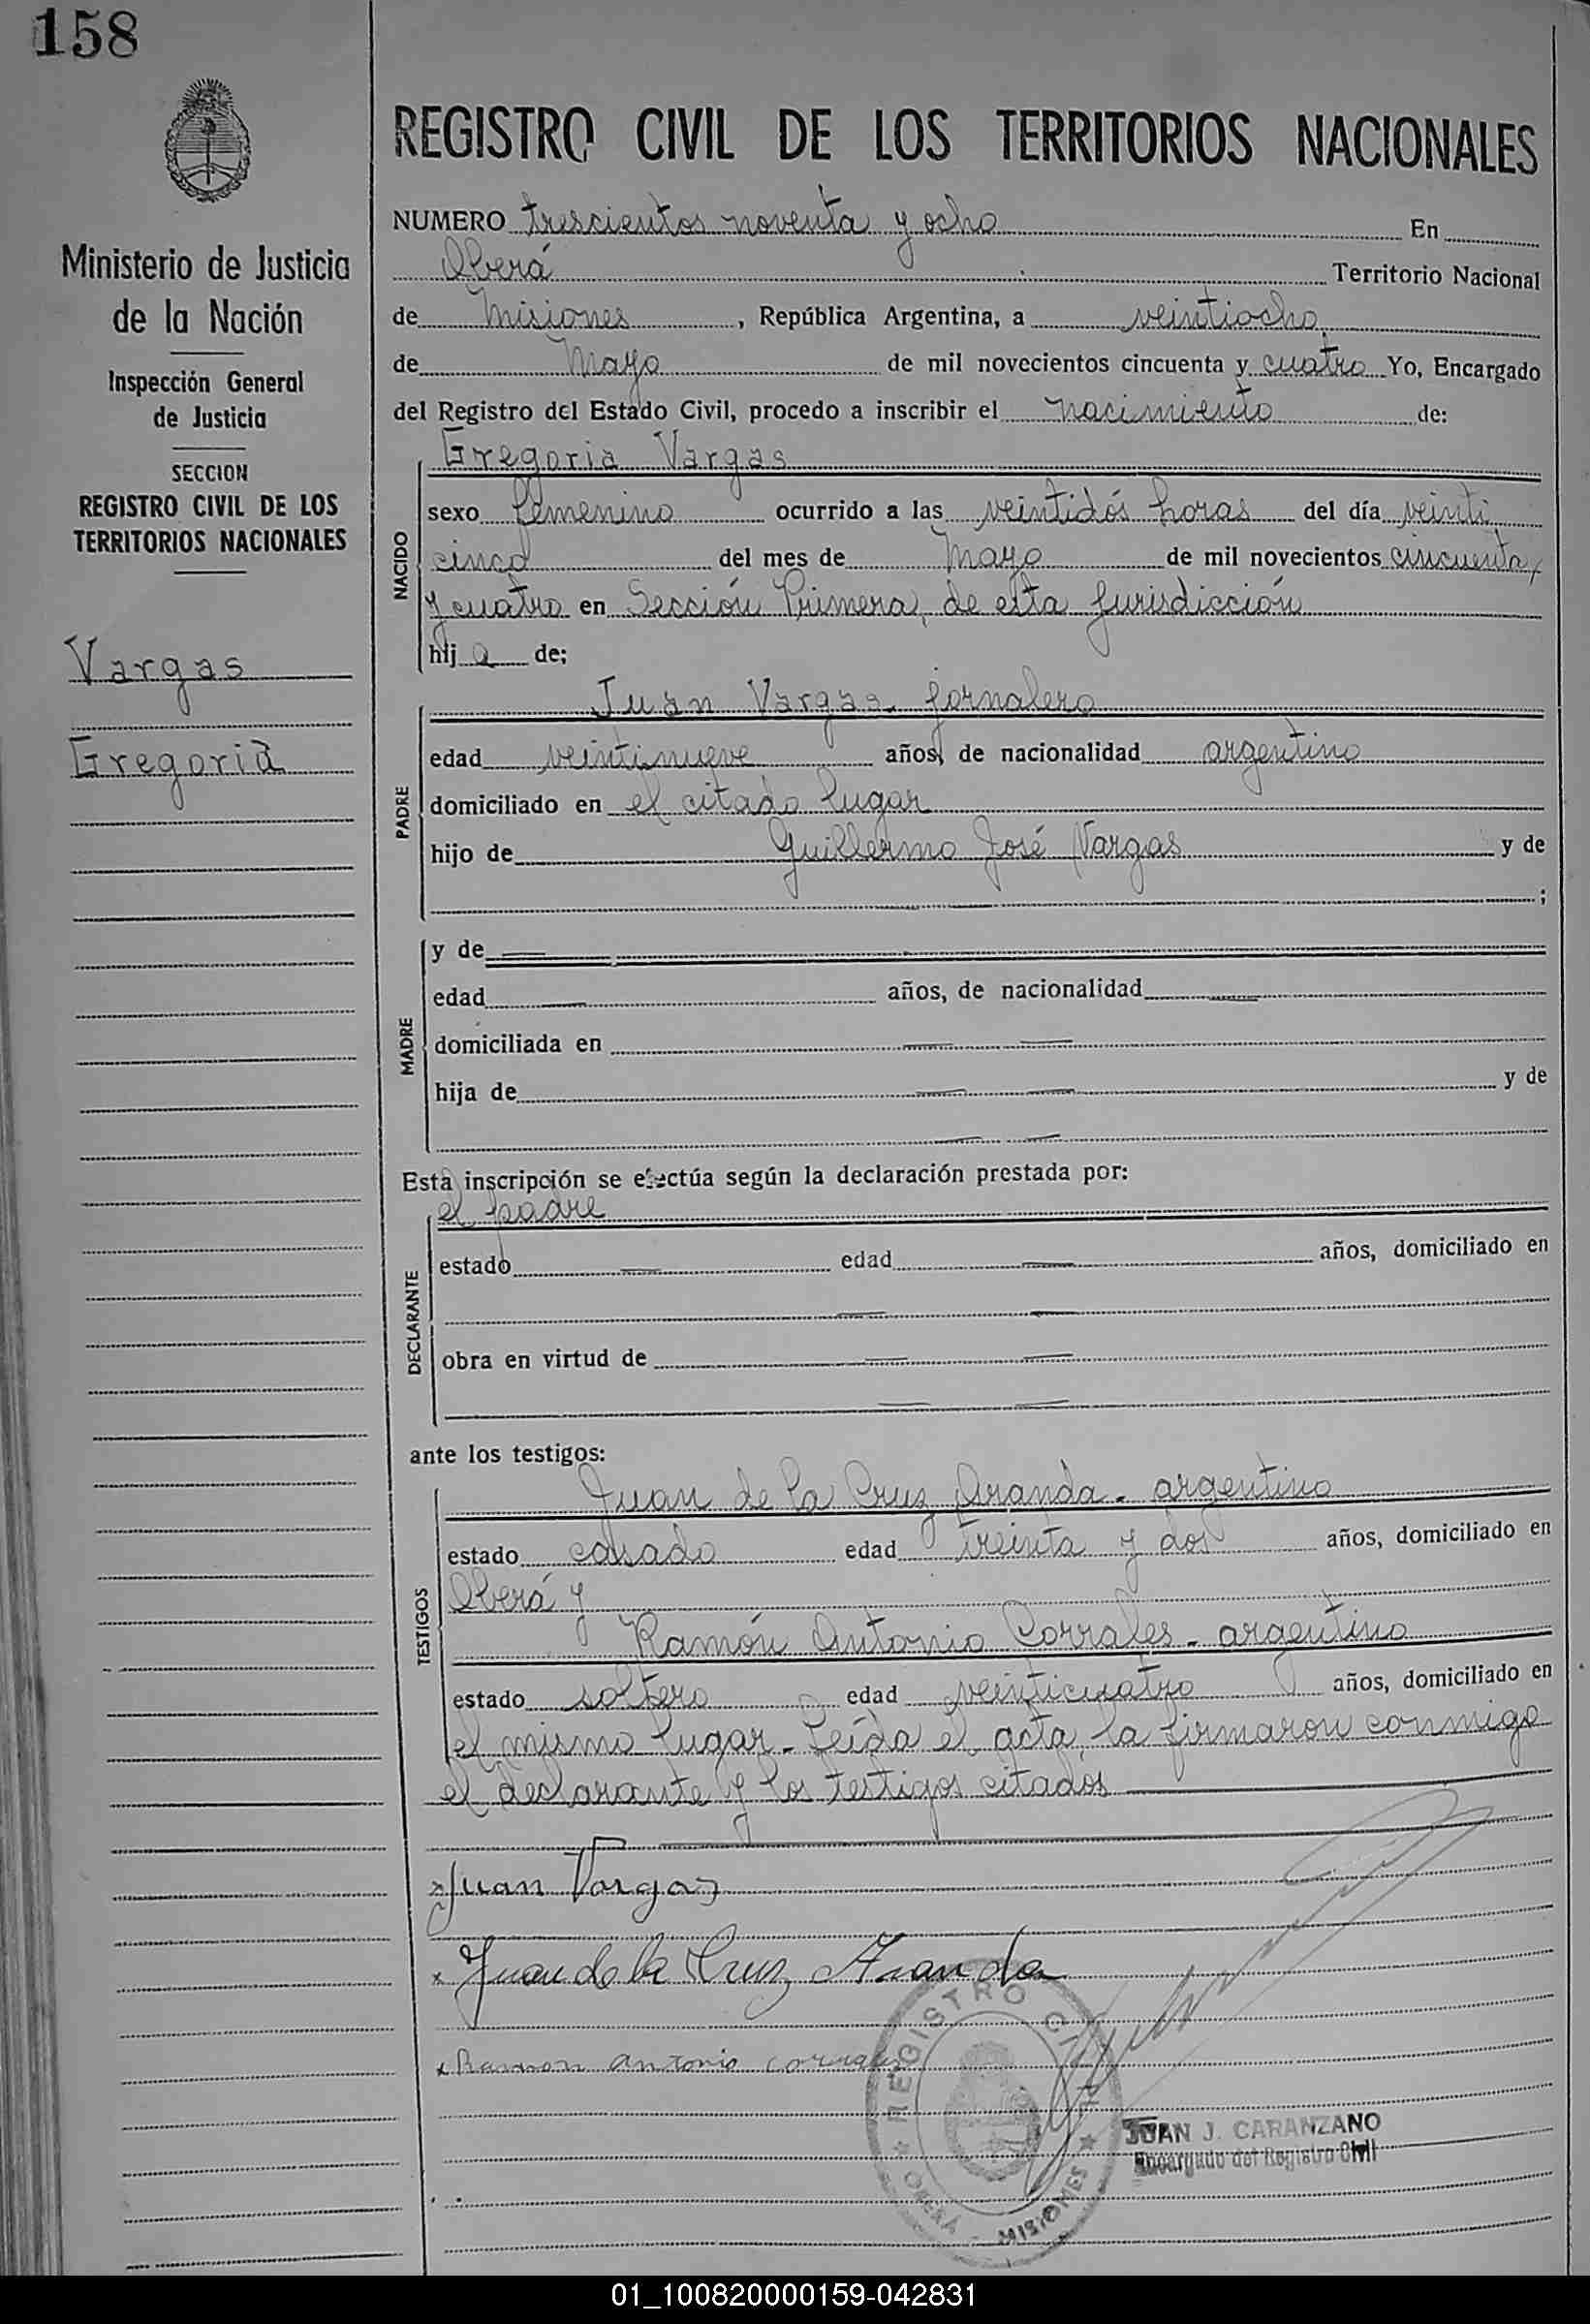 158
Ministerio de Justicia
de la Nación
Inspección General
de Justicia
SECCION
REGISTRO CIVIL DE LOS
TERRITORIOS NACIONALES
Vargas
Gregoria
REGISTRO CIVIL DE LOS TERRITORIOS NACIONALES
NUMERO trescientos noventa y ocho En
Oberá Territorio Nacional
de Misiones, República Argentina, a veintiocho
de Mayo de mil novecientos cincuenta y cuatro Yo, Encargado
del Registro del Estado Civil, procedo a inscribir el nacimiento de:
NACIDO
Gregoria Vargas
sexo femenino ocurrido a las veintidós horas del día veinti
cinco del mes de Mayo de mil novecientos cincuenta
y cuatro en Sección Primera, de esta Jurisdicción
hij a de;
PADRE
Juan Vargas. jornalero
edad veintinueve años, de nacionalidad argentino
domiciliado en el citado lugar
hijo de Guillermo José Vargas y de
;
MADRE
y de
edad años, de nacionalidad
domiciliada en
hija de y de
Esta inscripción se efectúa según la declaración prestada por:
DECLARANTE
el padre
estado edad años, domiciliado en
obra en virtud de
ante los testigos:
TESTIGOS
Juan de la Cruz Aranda. argentino
estado casado edad treinta y dos años, domiciliado en
Oberá y
Ramón Antonio Corrales - argentino
estado soltero edad veinticuatro años, domiciliado en
el mismo lugar. Leída el acta, la firmaron conmigo
el declarante y los testigos citados
Juan Vargas
x Juan de la Cruz Aranda
x Ramon antonio corrales
REGISTRO CIVIL
OBERÁ - MISIONES
JUAN J. CARANZANO
Encargado del Registro Civil
01_100820000159-042831